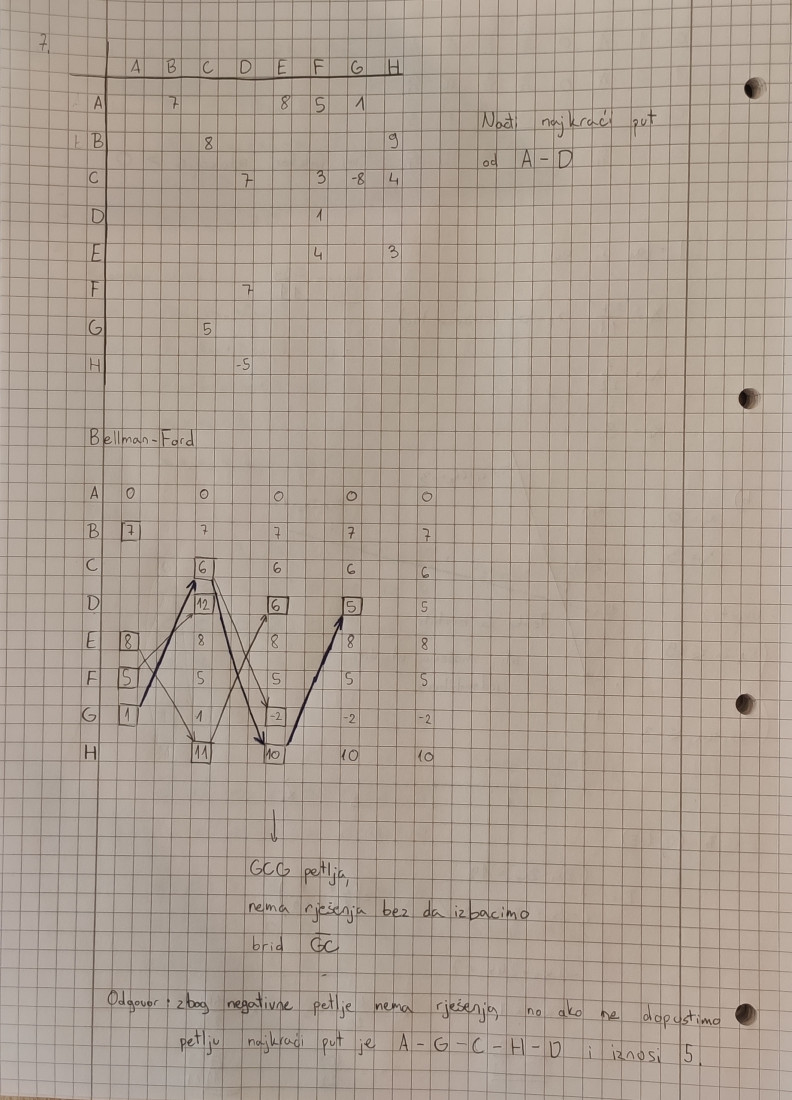 7.
A B C D E F G H
A 7 8 5 1
B 8 9
C 7 3 -8 4
D 1
E 4 3
F 7
G 5
H -5
Nađi najkraći put
od A - D
Bellman-Ford
A 0 0 0 0 0
B 7 7 7 7 7
C 6 6 6 6
D 12 6 5 5
E 8 8 8 8 8
F 5 5 5 5 5
G 1 1 -2 -2 -2
H 11 10 10 10
GCG petlja,
nema rješenja bez da izbacimo
brid GC
Odgovor: zbog negativne petlje nema rješenja, no ako ne dopustimo
petlju najkraći put je A - G - C - H - D i iznosi 5.